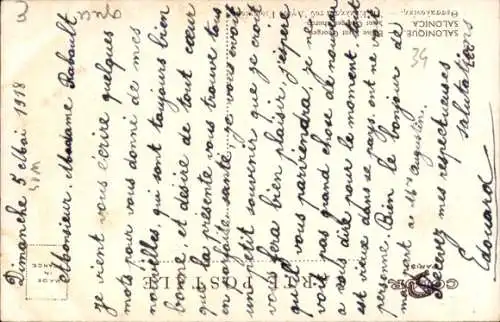 Dimanche 5 Mai 1918
Monsieur, Madame Rabault
je vient vous écrire quelques
mots pour vous donné de mes
nouvelles, qui sont toujours bien
bonne, et désire de tout cœur
que la présente vous trouve tous
en parfaite santé. je vous envoit
un petit souvenir que je crois
vous fera bien plaisir, j'espère
qu'el vous parviendra, je ne
voit pas grand chose de nouveau
a vous dire pour le moment. tout
est vieux dans se pays. ont ne
personne. Bien le bonjour de
ma part a Mr Augustin.
Recevez mes respectueuses
salutations
Edouard
34
SALONIQUE
SALONICA
CARTE POSTALE
MADE IN FRANCE
PARIS